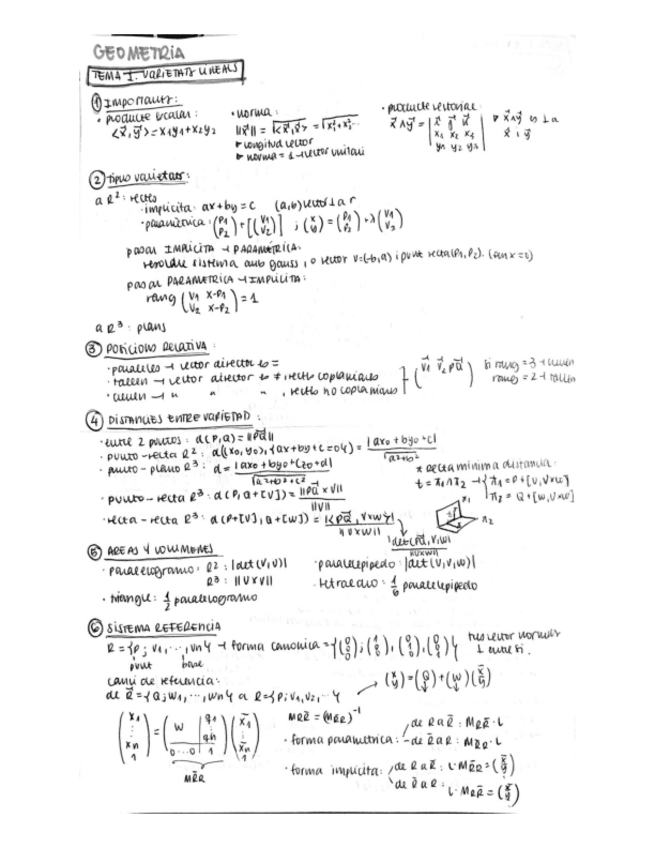 GEOMETRIA
TEMA 1. VARIETATS LINEALS
① Importants:
· producte escalar:
⟨x⃗,y⃗⟩ = x1y1+x2y2
· norma:
||x⃗|| = √⟨x⃗,x⃗⟩ = √x1²+x2²...
longitud vector
norma = 1 → vector unitari
· producte vectorial:
x⃗∧y⃗ = | x⃗ y⃗ z⃗ |
x1 x2 x3
y1 y2 y3
x⃗∧y⃗ és ⊥ a
x⃗ i y⃗
② Tipus varietats:
a R²: rectes
· implícita: ax+by = c (a,b) vector ⊥ a r
· paramètrica: (P1 P2) + [(V1 V2)] ; (x y) = (P1 P2) + λ(V1 V2)
passar IMPLÍCITA → PARAMÈTRICA:
resoldre sistema amb gauss, o vector v=(-b,a) i punt recta(P1,P2).
passar PARAMETRICA → IMPLICITA:
rang (V1 x-P1
V2 x-P2) = 1
a R³: plans
③ POSICIONS RELATIVA:
· paral·leles → vector director és =
· tallen → vector director és ≠, rectes coplanàries
· creuen → " " " , rectes no coplanàries
(v⃗1 v⃗2 pq⃗) si rang = 3 → creuen
rang = 2 → tallen
④ DISTANCIES ENTRE VARIETAD:
· entre 2 puntos: d(P,Q) = ||PQ⃗||
· punto-recta R²: d((x0,y0),{ax+by+c=0}) = |ax0+by0+c| / √a²+b²
· punto-plano R³: d = |ax0+by0+cz0+d| / √a²+b²+c²
· punto-recta R³: d(P,Q+[V]) = ||PQ⃗ × V|| / ||V||
· recta-recta R³: d(P+[V],Q+[W]) = |⟨PQ⃗, V×W⟩| / ||V×W||
|det(PQ⃗,V,W)| / ||V×W||
* Recta mínima distancia:
t = π1∩π2 → { π1 = P+[V,V×W]
π2 = Q+[W,V×W]
π1
π2
⑤ AREAS Y VOLUMENES
· paralelogramo: R²: |det(V,U)|
R³: ||U×V||
· triangle: 1/2 paralelogramo
· paralelepipedo: |det(V,U,W)|
· tetraedro: 1/6 paralelepipedo
⑥ SISTEMA REFERENCIA
R = {P; V1,...,Vn} → forma canonica = {(0 0 0);(1 0 0),(0 1 0),(0 0 1)}
punt base
⊥ entre si.
canvi de referencia:
de R̄ = {Q;W1,...,Wn} a R = {P;V1,V2,...}
(x y) = (Q) + (W)(x̄ ȳ)
(x1 ⋮ xn 1) = (W | q1 ⋮ qn
0...0 | 1)(x̄1 ⋮ x̄n 1)
MR̄R
MRR̄ = (MR̄R)⁻¹
· forma parametrica: de R a R̄: MRR̄ · L
de R̄ a R: MR̄R · L
· forma implicita: de R a R̄: L · MR̄R = (x̄ ȳ)
de R̄ a R: L · MRR̄ = (x y)